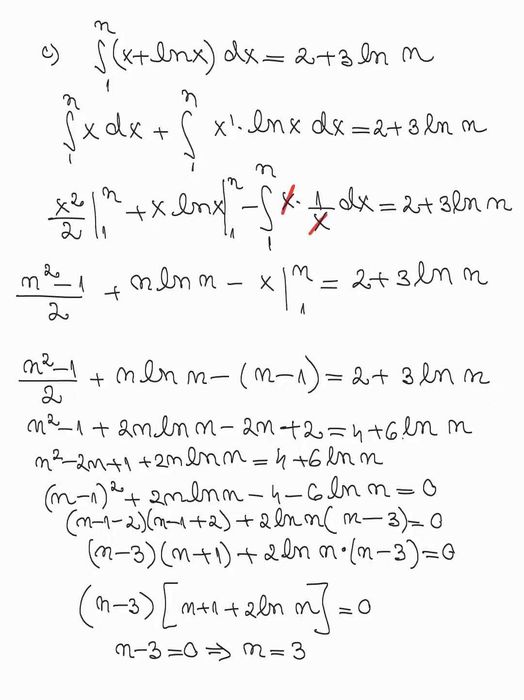 c) ∫₁ⁿ (x+lnx) dx = 2+3 ln n
∫₁ⁿ x dx + ∫₁ⁿ x'·lnx dx = 2+3 ln n
x²/2 |₁ⁿ + x lnx |₁ⁿ - ∫₁ⁿ x·1/x dx = 2+3 ln n
(n²-1)/2 + n ln n - x |₁ⁿ = 2+3 ln n
(n²-1)/2 + n ln n - (n-1) = 2+3 ln n
n²-1+2n ln n-2n+2 = 4+6 ln n
n²-2n+1+2n ln n = 4+6 ln n
(n-1)²+2n ln n-4-6 ln n = 0
(n-1-2)(n-1+2)+2 ln n(n-3) = 0
(n-3)(n+1)+2 ln n·(n-3) = 0
(n-3)[n+1+2 ln n] = 0
n-3=0 ⇒ n=3